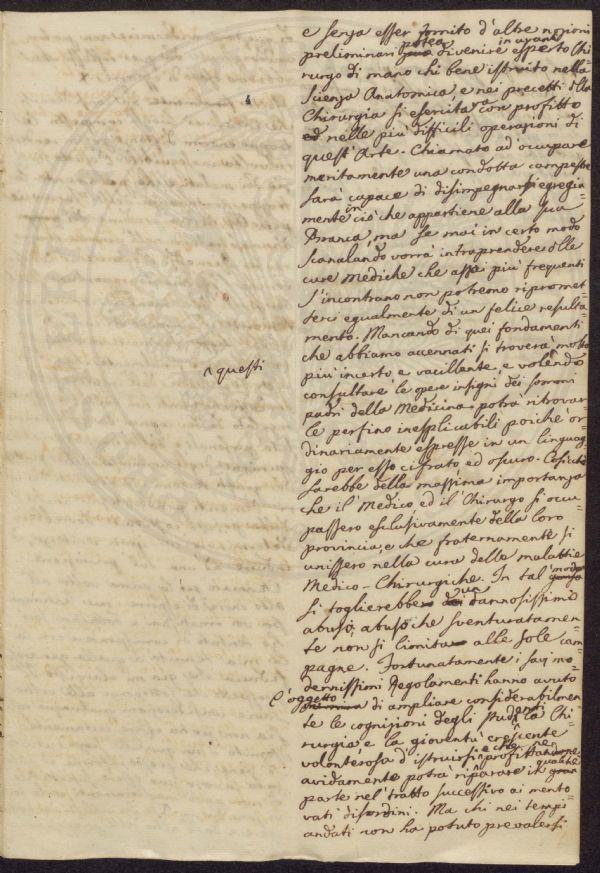 e senza esser fornito d'altre nozioni
preliminari potea divenire in avanti esperto Chi
rurgo di mano chi bene istruito nella
Scienza Anatomica, e nei precetti della
Chirurgia si esercitava con profitto
nelle più difficili operazioni di
quest'Arte. Chiamato ad occupare
meritamente una condotta campestre
sarà capace di disimpegnarsi egregia
mente in ciò che appartiene alla sua
Branca, ma se mai in certo modo
Scanalando vorrà intraprendere delle
cure Mediche che assai più frequenti
s'incontrano non potremo ripromet=
terci egualmente di un felice resulta=
mento. Mancando di quei fondamenti
che abbiamo accennati si troverà molto
più incerto e vacillente, e volendo
^ questi
consultare le opere insigni dei sommi
padri della Medicina potrà ritrovar=
le perfino inesplicabili poiché or
dinariamente espresse in un linguag
gio per esso cifrato, ed oscuro. Cosicchè
sarebbe della massima importanza
che il Medico, ed il Chirurgo si occu=
passero esclusivamente della loro
provincia, e che fraternamente si
unissero nella cura delle malattie
Medico-Chirurgiche. In tal modo
si toglierebbe un dannosissimo
abuso, abuso che sventuratamen=
te non si limita alle sole cam=
pagne. Fortunatamente i savj mo=
dernissimi Regolamenti hanno avuto
l'oggetto di ampliare considerabilmen=
te le cognizioni degli studenti la Chi=
rurgia e la gioventù crescente
volonterosa d'istruirsi, e che ne
avidamente potrà riparare in qualche
parte nel tratto successivo ai mento
vati disordini. Ma chi nei tempi
andati non ha potuto prevalersi